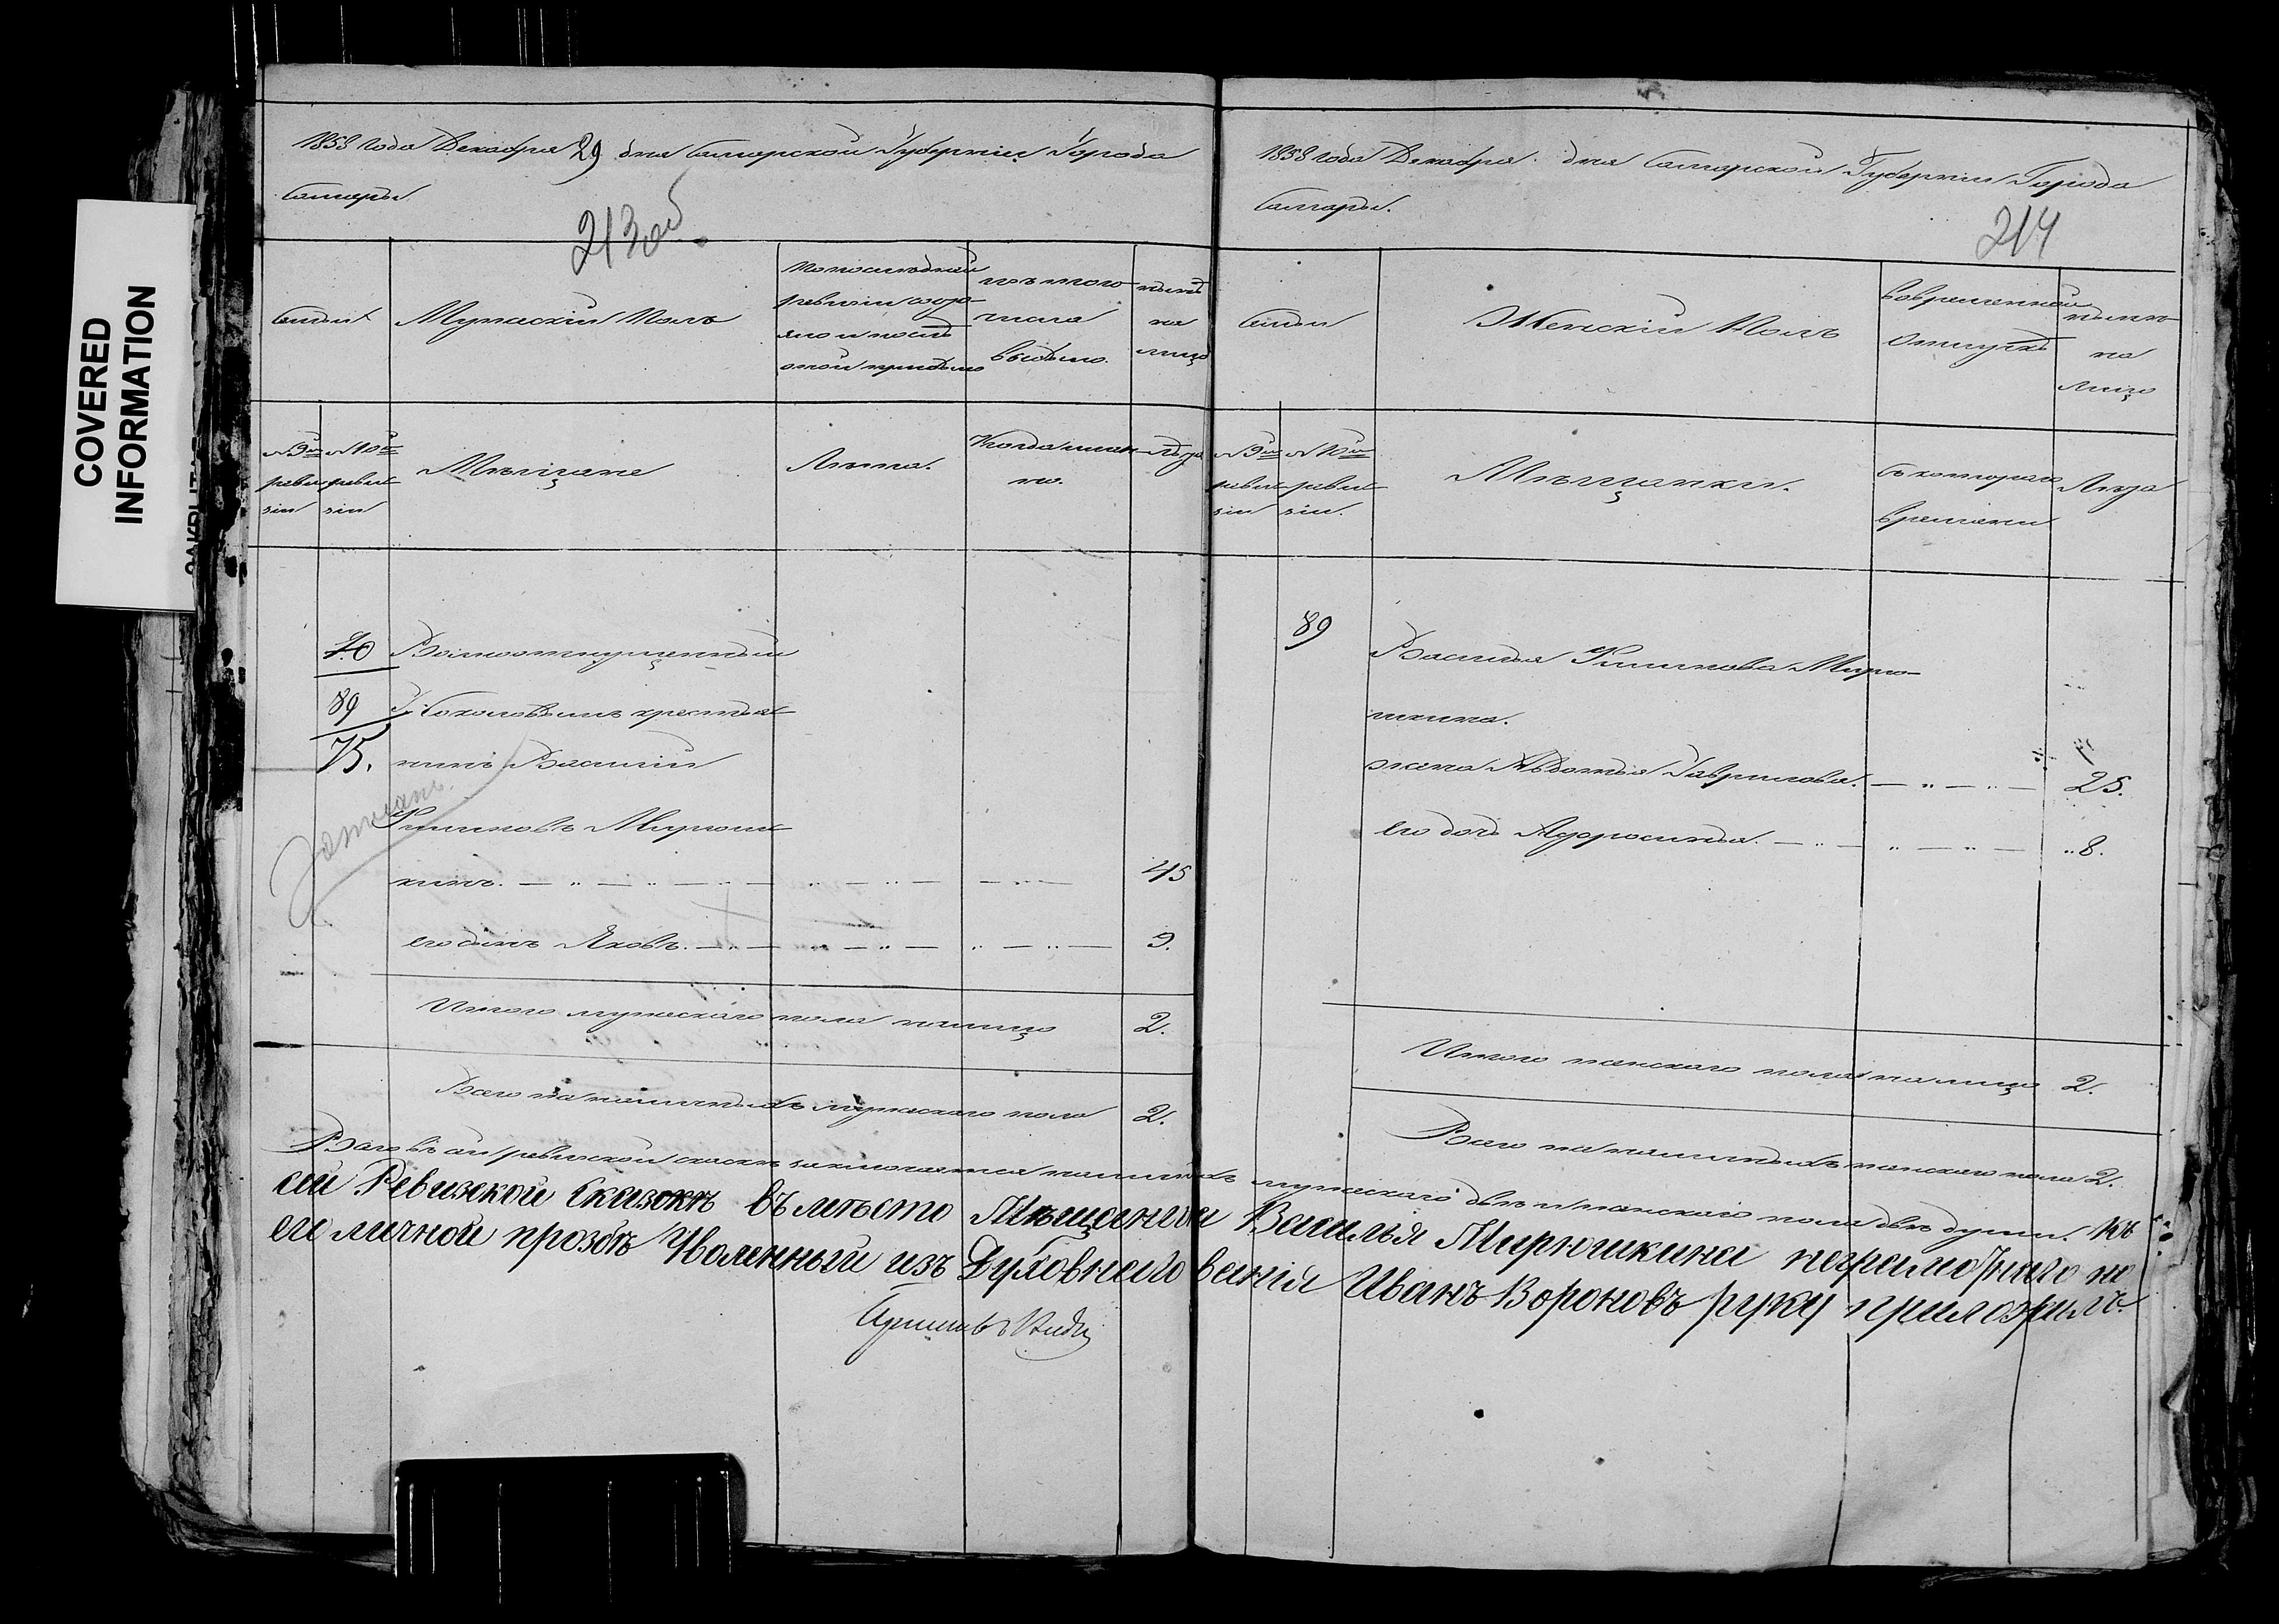 COVERED
INFORMATION
1858 года Декабря 29 дня Самарской Губернии Города
Самары
213 об.
Семьи
Мужескій Полъ
По последней
ревизіи состо
яло и после
оной прибыло
изъ того
числа
выбыло.
ныне
на
лицо
№ 9й
реви
зіи
№ 10й
реви
зіи
Мѣщане
Лѣта.
Когда имен
но.
Лѣта
40
89
75.
Вольноотпущенный
Г. Соколовымъ крестья
нинъ Василій
Мирюш
кинъ. 45
его сынъ Яковъ. 9.
Итого мужескаго пола налицо 2.
Всего на мужескаго пола 2.
1858 года Декабря дня Самарской Губерніи Города
Самары.
214
Семьи
Женскій Полъ
Во временной
отлучкѣ
ныне
на
лицо
№ 9й
реви
зіи
№ 10й
реви
зіи.
Мѣщанки.
Съ котораго
времени
Лѣта
89
Василья Миркю-
шкина.
жена Авдотья Гаврилова. 25.
его дочь Афросинья. 8.
Итого женскаго пола на лицо 2.
Всего на женскаго пола 2.
Всего въ сей ревизской сказкѣ заключается мужескаго двѣ и женскаго пола двѣ души. Къ
сей Ревизской Сказокъ въ мѣсто Мѣщанина Василья Мирюшкина неграмотнаго по
его личной прозбѣ Уволенный изъ Духовнаго ванія Иванъ Вороновъ руку приложилъ.